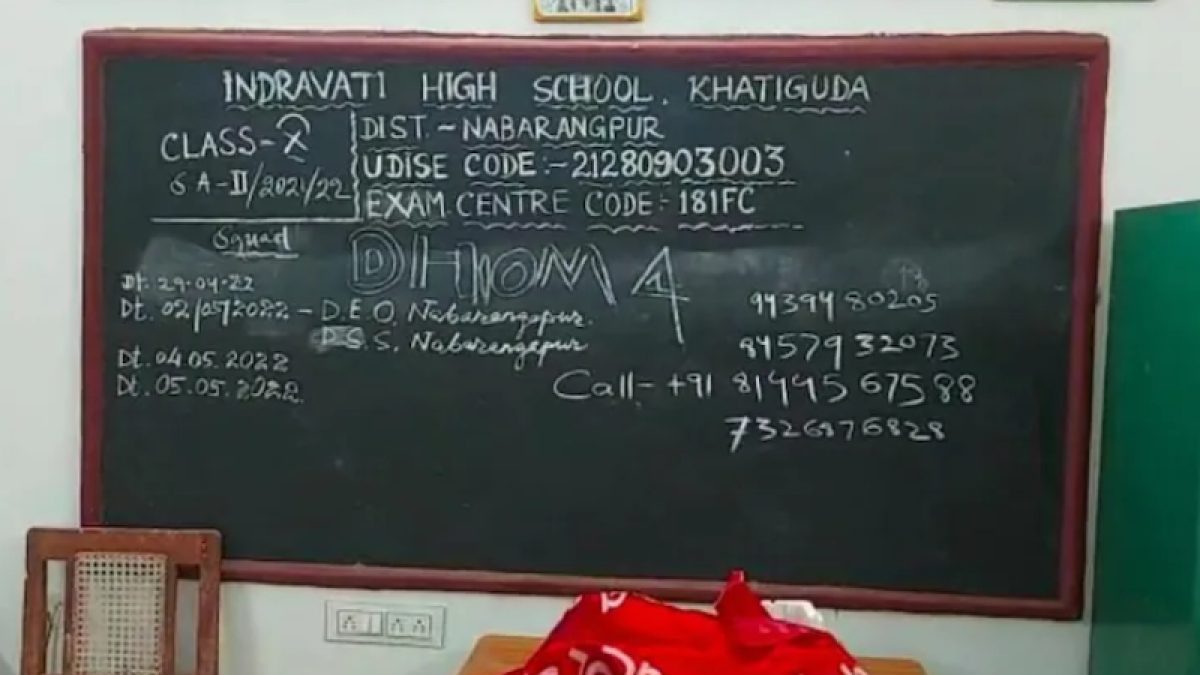 INDRAVATI HIGH SCHOOL. KHATIGUDA
CLASS-X
SA-II/2021/22
DIST.-NABARANGPUR
UDISE CODE:-21280903003
EXAM CENTRE CODE:-181FC
Squad
DHOOM 4
Dt. 29.04.22
Dt. 02/05/2022 - D.E.O. Nabarangapur.
D.S.S. Nabarangapur
Dt. 04.05.2022
Dt. 05.05.2022
9439480205
8457932073
Call- +91 8144567588
7326876828